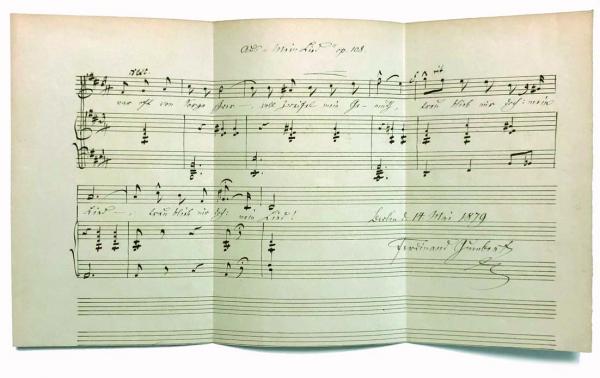 Aus „Mein Lied“ op. 108.
war oft von Sorgen schwer, voll Zweifel mein Gemüth, treu blieb mir doch mein
Lied, treu blieb mir doch mein Lied!
Berlin d. 14 Mai 1879
Ferdinand Gumbert